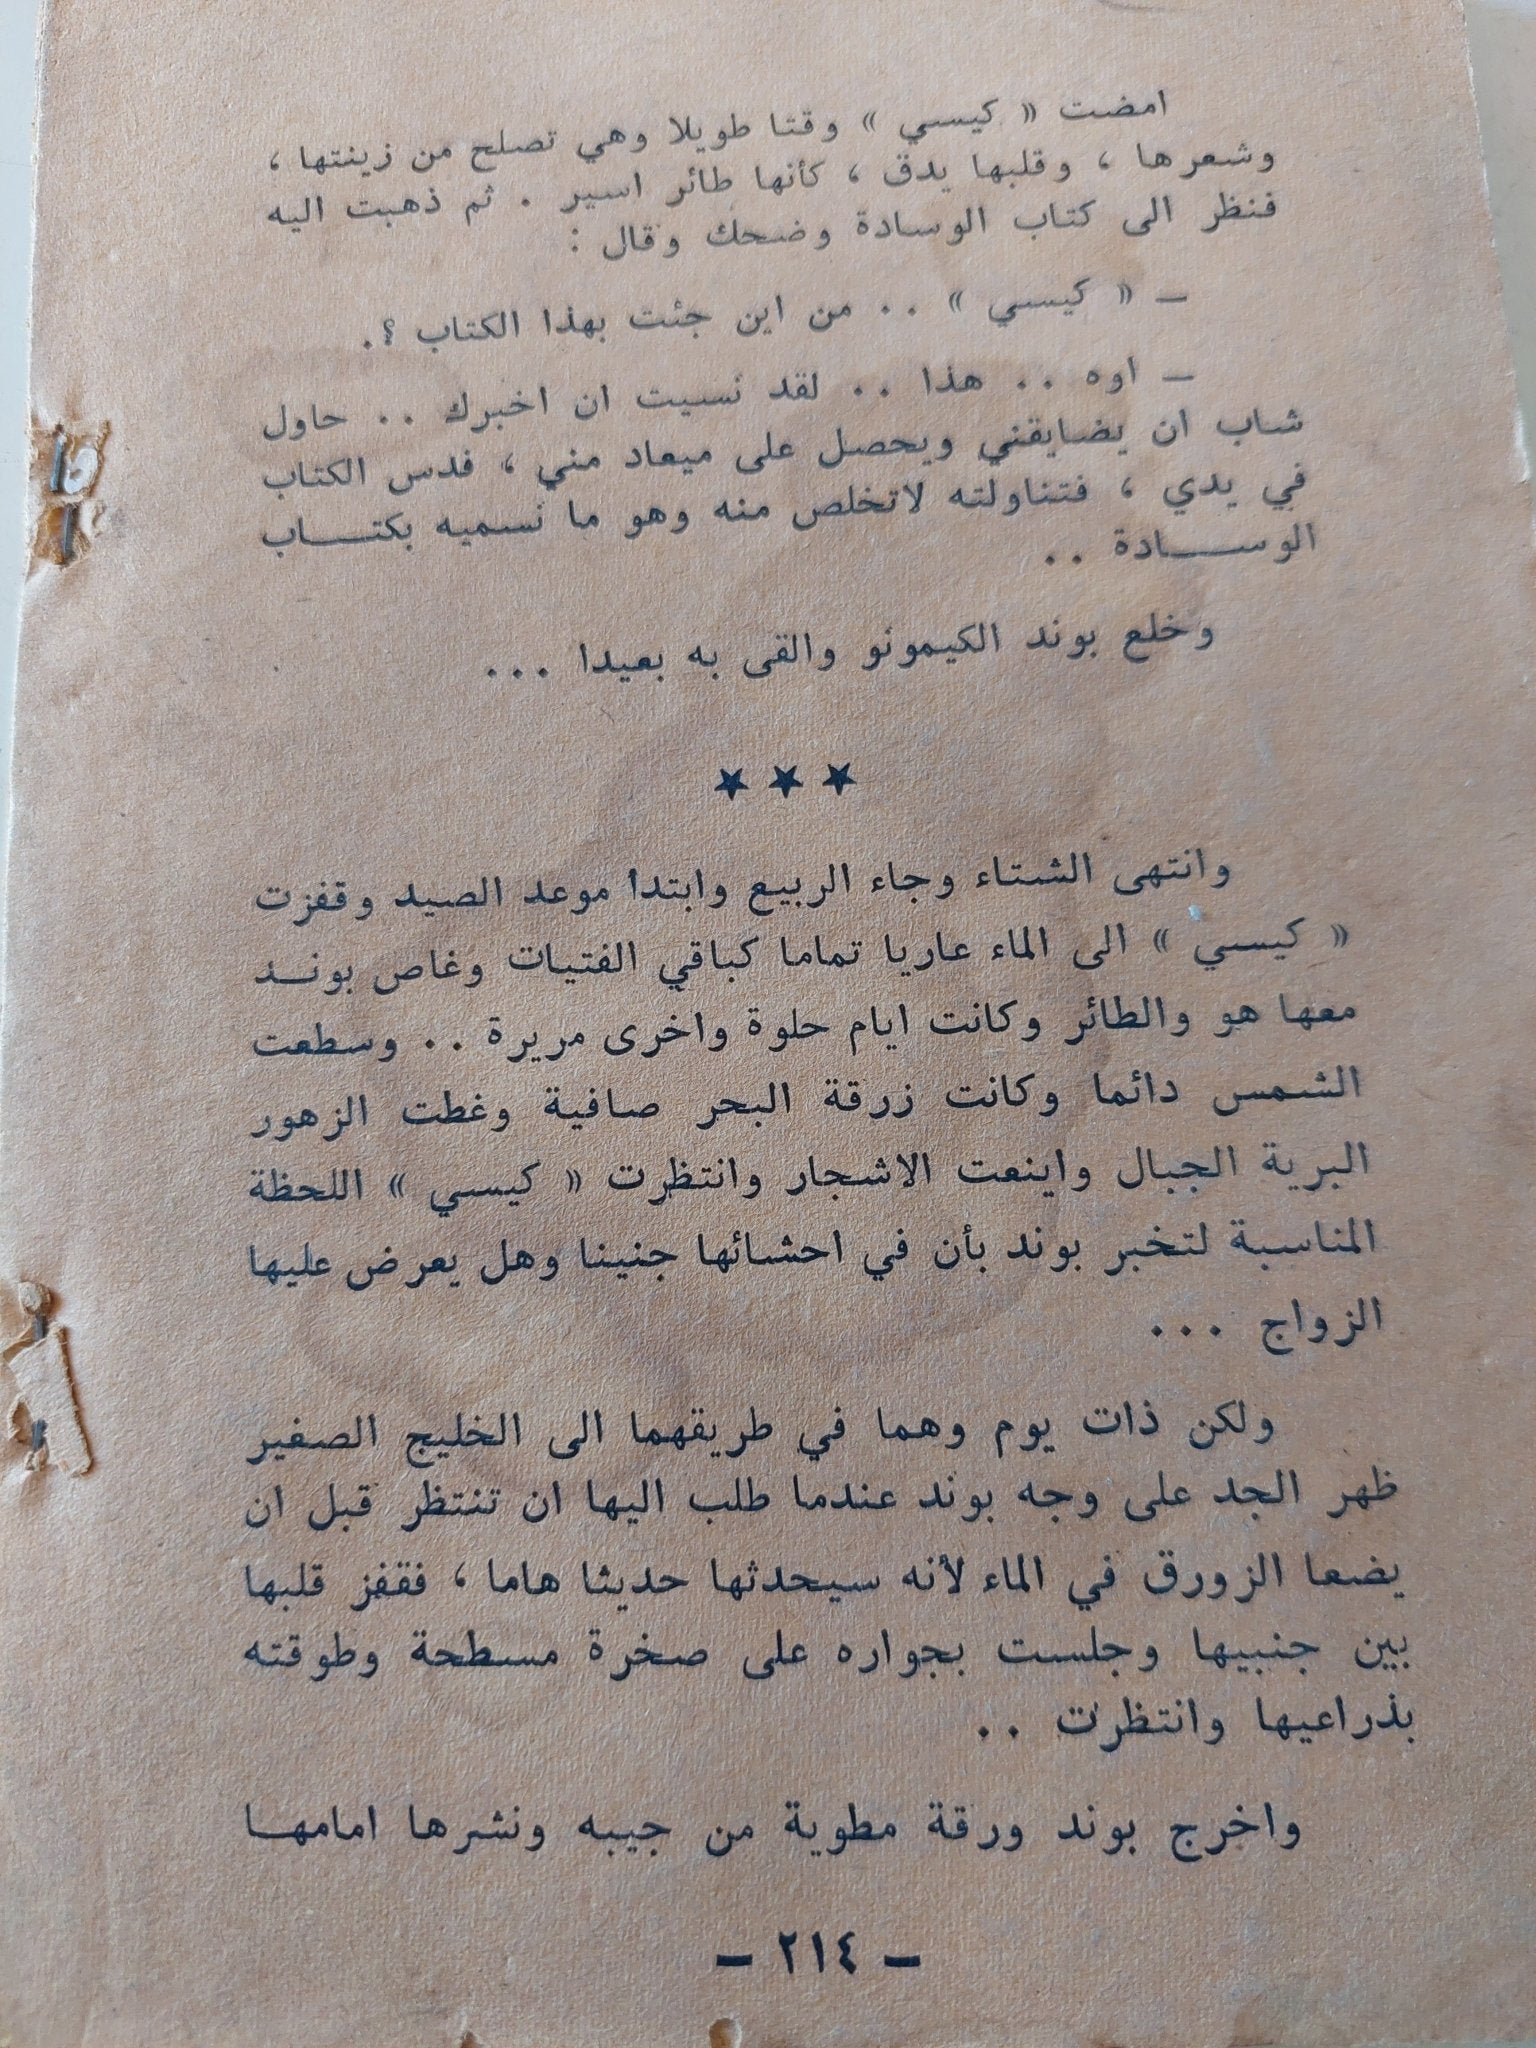 امضت « كيسي » وقتا طويلا وهي تصلح من زينتها ،
وشعرها ، وقلبها يدق ، كأنها طائر اسير . ثم ذهبت اليه
فنظر الى كتاب الوسادة وضحك وقال :
— « كيسي » . . من اين جئت بهذا الكتاب ؟.
— اوه . . هذا . . لقد نسيت ان اخبرك . . حاول
شاب ان يضايقني ويحصل على ميعاد مني ، فدس الكتاب
في يدي ، فتناولته لاتخلص منه وهو ما نسميه بكتـــاب
الوســـادة . .
وخلع بوند الكيمونو والقى به بعيدا . . .
★ ★ ★
وانتهى الشتاء وجاء الربيع وابتدأ موعد الصيد وقفزت
« كيسي » الى الماء عاريا تماما كباقي الفتيات وغاص بونـد
معها هو والطائر وكانت ايام حلوة واخرى مريرة . . وسطعت
الشمس دائما وكانت زرقة البحر صافية وغطت الزهور
البرية الجبال واينعت الاشجار وانتظرت « كيسي » اللحظة
المناسبة لتخبر بوند بأن في احشائها جنينا وهل يعرض عليها
الزواج . . .
ولكن ذات يوم وهما في طريقهما الى الخليج الصغير
ظهر الجد على وجه بوند عندما طلب اليها ان تنتظر قبل ان
يضعا الزورق في الماء لأنه سيحدثها حديثا هاما ، فقفز قلبها
بين جنبيها وجلست بجواره على صخرة مسطحة وطوقته
بذراعيها وانتظرت . .
واخرج بوند ورقة مطوية من جيبه ونشرها امامهـا
— ٢١٤ —